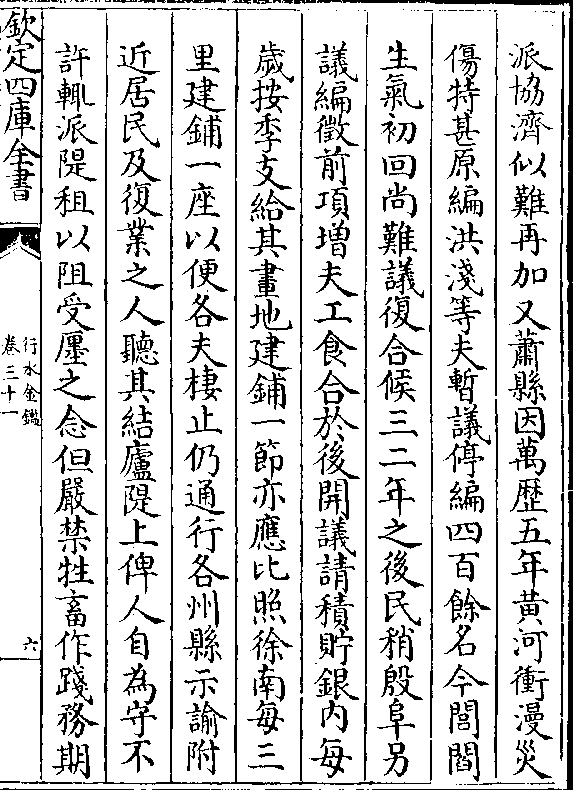 派協濟似難再加又蕭縣因萬歴五年黄河衝漫災
傷特甚原編洪淺等夫暫議停編四百餘名今閭閻
生氣初回尚難議復合候三二年之後民稍殷阜另
議編徵前項増夫工食合於後開議請積貯銀内每
歲按季支給其畫地建鋪一節亦應比照徐南每三
里建鋪一座以便各夫棲止仍通行各州縣示諭附
近居民及復業之人聽其結廬隄上俾人自為守不
許輒派隄租以阻受廛之念但嚴禁牲畜作踐務期
欽定四庫全書
行水金鑑
卷三十一
六